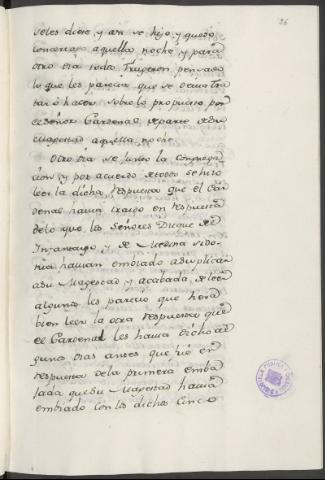 26
seles diese, y asi se hizo, y quedo
concertado aquella noche y para
otro dia todos truxeron, pensado
lo que les parecia que se devia tra
tar ó hacer sobre lo propuesto por
el Señor Cardenal de parte de su
Magestad aquella noche.
Otro dia se junto la congrega
cion, y por acuerdo de todos se hizo
leer la dicha respuesta que el Car
denal havia traido en respuesta
de lo que los Señores Duque del
Infantazgo, y de Medina Sido
nia havian embiado a suplicar
a su Magestad y acabada de leer
algunos les parecio que hera
bien leer la otra respuesta que
el Cardenal les havia dicho al
gunos dias antes que fue en
respuesta de la primera emba
jada que su Magestad havia
embiado con los dichos cinco